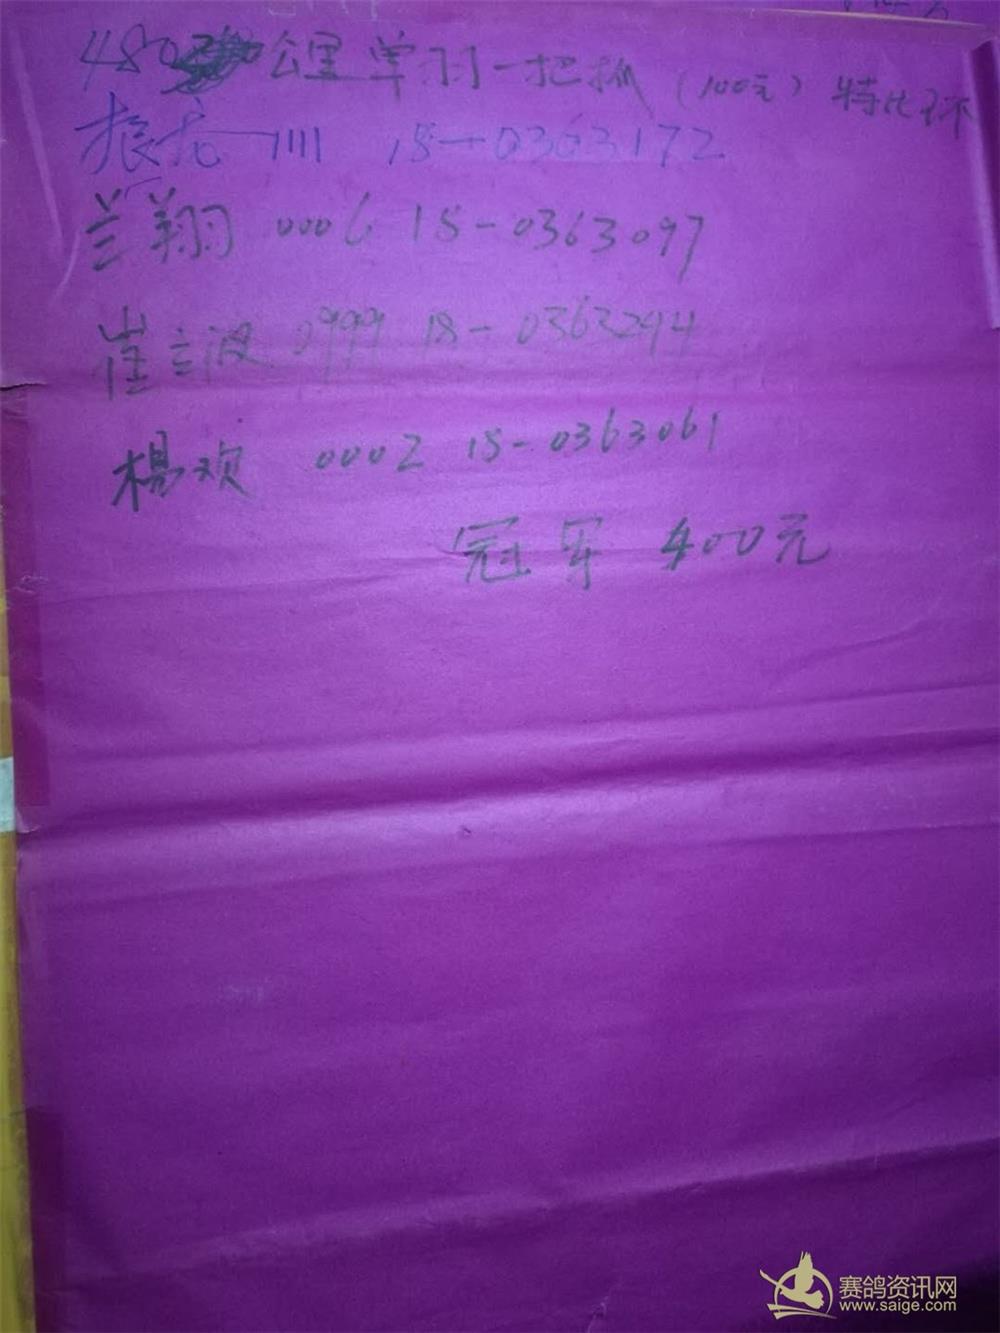 480公里单羽一把抓（100元）特比环
振龙 1111 18-0363172
兰翔 0006 18-0363097
崔立波 0999 18-0363294
杨欢 0002 18-0363061
冠军 400元
赛鸽资讯网
www.saige.com